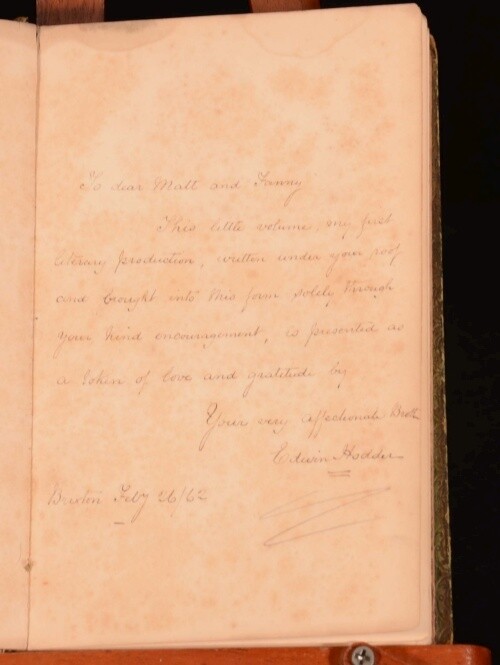 To dear Matt and Fanny
This little volume, my first
literary production, written under your roof,
and brought into this form solely through
your kind encouragement, is presented as
a token of love and gratitude by
Your very affectionate Broth
Edwin Hodder
Brixton Feby 26/62